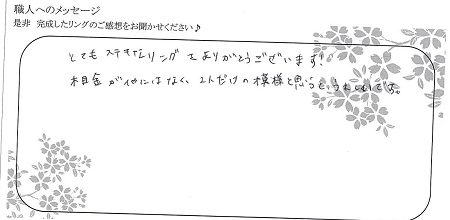 職人へのメッセージ
是非 完成したリングのご感想をお聞かせください♪
とてもステキなリングでありがとうございます!
木目金が他にはなく、2人だけの模様と思うと、うれしいです。